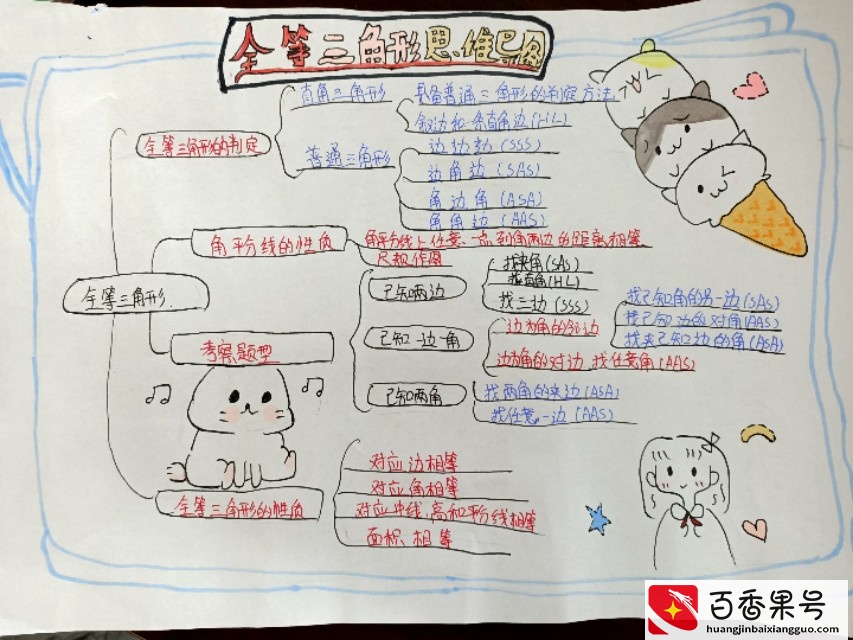 全等三角形思维导图
直角三角形
具备普通三角形的判定方法
斜边和一条直角边(HL)
全等三角形的判定
普通三角形
边边边(SSS)
边角边(SAS)
角边角(ASA)
角角边(AAS)
角平分线的性质
角平分线上任意一点到角两边的距离相等
尺规作图
全等三角形
已知两边
找夹角(SAS)
找直角(HL)
找三边(SSS)
考察题型
已知一边一角
边为角的邻边
找已知角的另一边(SAS)
找已知边的对角(AAS)
找夹已知边的角(ASA)
边为角的对边 找任意角(AAS)
已知两角
找两角的夹边(ASA)
找任意一边(AAS)
全等三角形的性质
对应边相等
对应角相等
对应中线、高和平分线相等
面积相等
百香果号
huangjinbaixiangguo.com